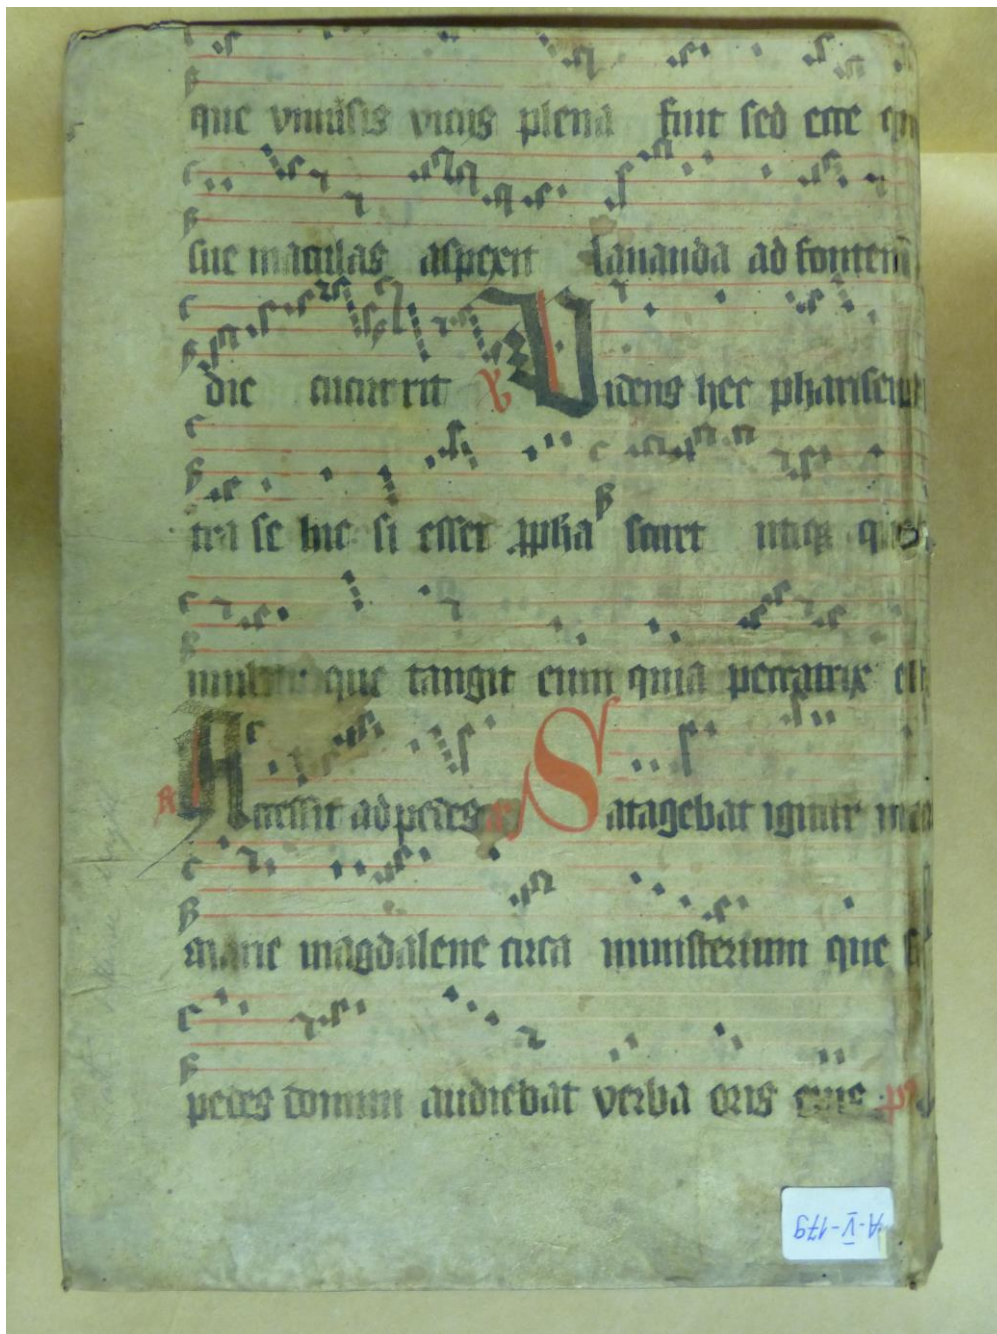 que vniűsis vicijs plena fuit sed ecce
sue maculas aspexit lauanda ad fontem
die cucurrit V Videns hec phariseus
tra se hic si esset ppha sciret utiqz
mulier que tangit eum quia peccatrix
R Accessit ad pedes Satagebat igitur
marie magdalene circa ministerium que
pedes domini audiebat verba oris eius ps
A-V-179